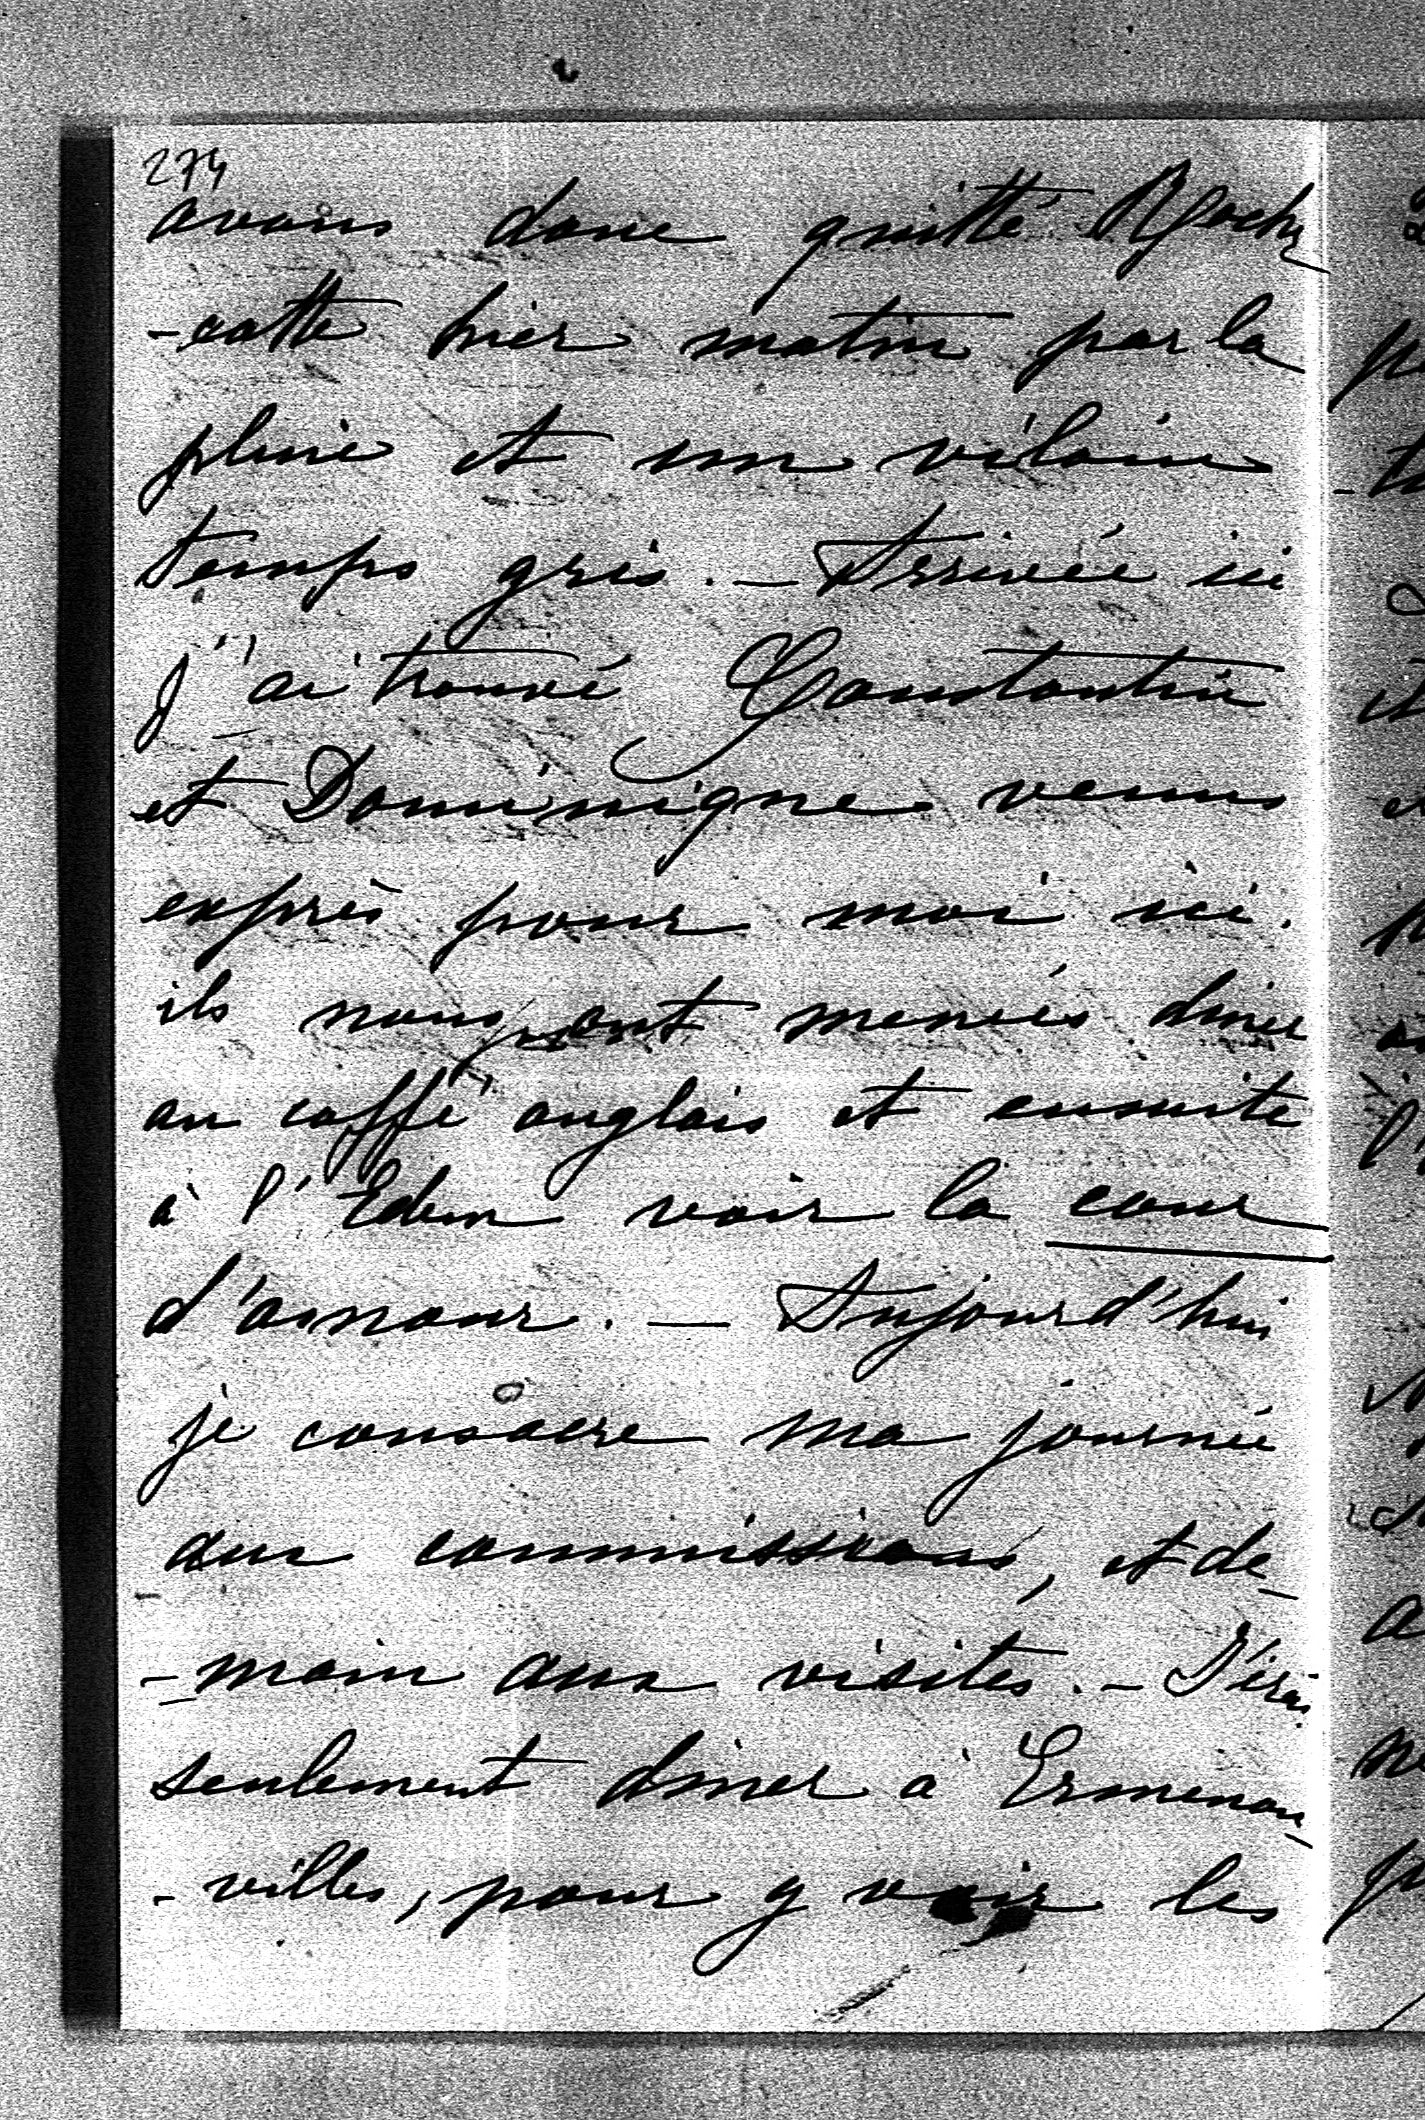 274
avons donc quitté Roche
-cotte hier matin par la
pluie et un vilain
temps gris. — Arrivée ici
j'ai trouvé Constantin
et Dominique venus
exprès pour moi ici.
ils nous ont menées diner
au caffé anglais et ensuite
à l'Eden voir la cour
d'amour. — Aujourd'hui
je consacre ma journée
aux commissions, et de-
-main aux visites. — J'irai
seulement diner à Ermenon-
-villes, pour y voir les